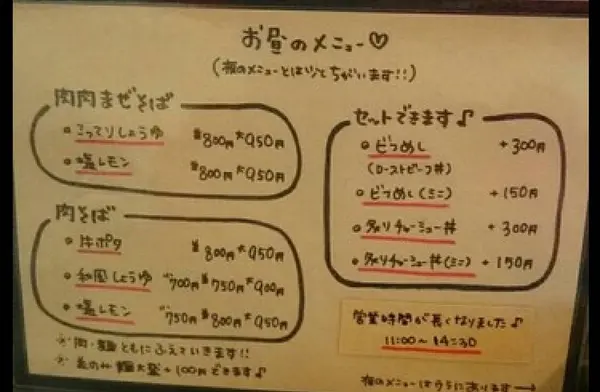 お昼のメニュー♡
(夜のメニューとはべつでちがいます!!)
肉肉まぜそば
・こってりしょうゆ 並800円 大950円
・塩レモン 並800円 大950円
肉そば
・牛ポタ 並800円 大950円
・和風しょうゆ 小700円 並750円 大900円
・塩レモン 小750円 並800円 大950円
※肉・麺ともにふえていきます!!
麺大盛+100円できます♪
セットできます♪
・ビフめし +300円
(ローストビーフ丼)
・ビフめし(ミニ) +150円
・炙りチャーシュー丼 +300円
・炙りチャーシュー丼(ミニ) +150円
営業時間が長くなりました♪
11:00〜14:30
夜のメニューはうらにあります→